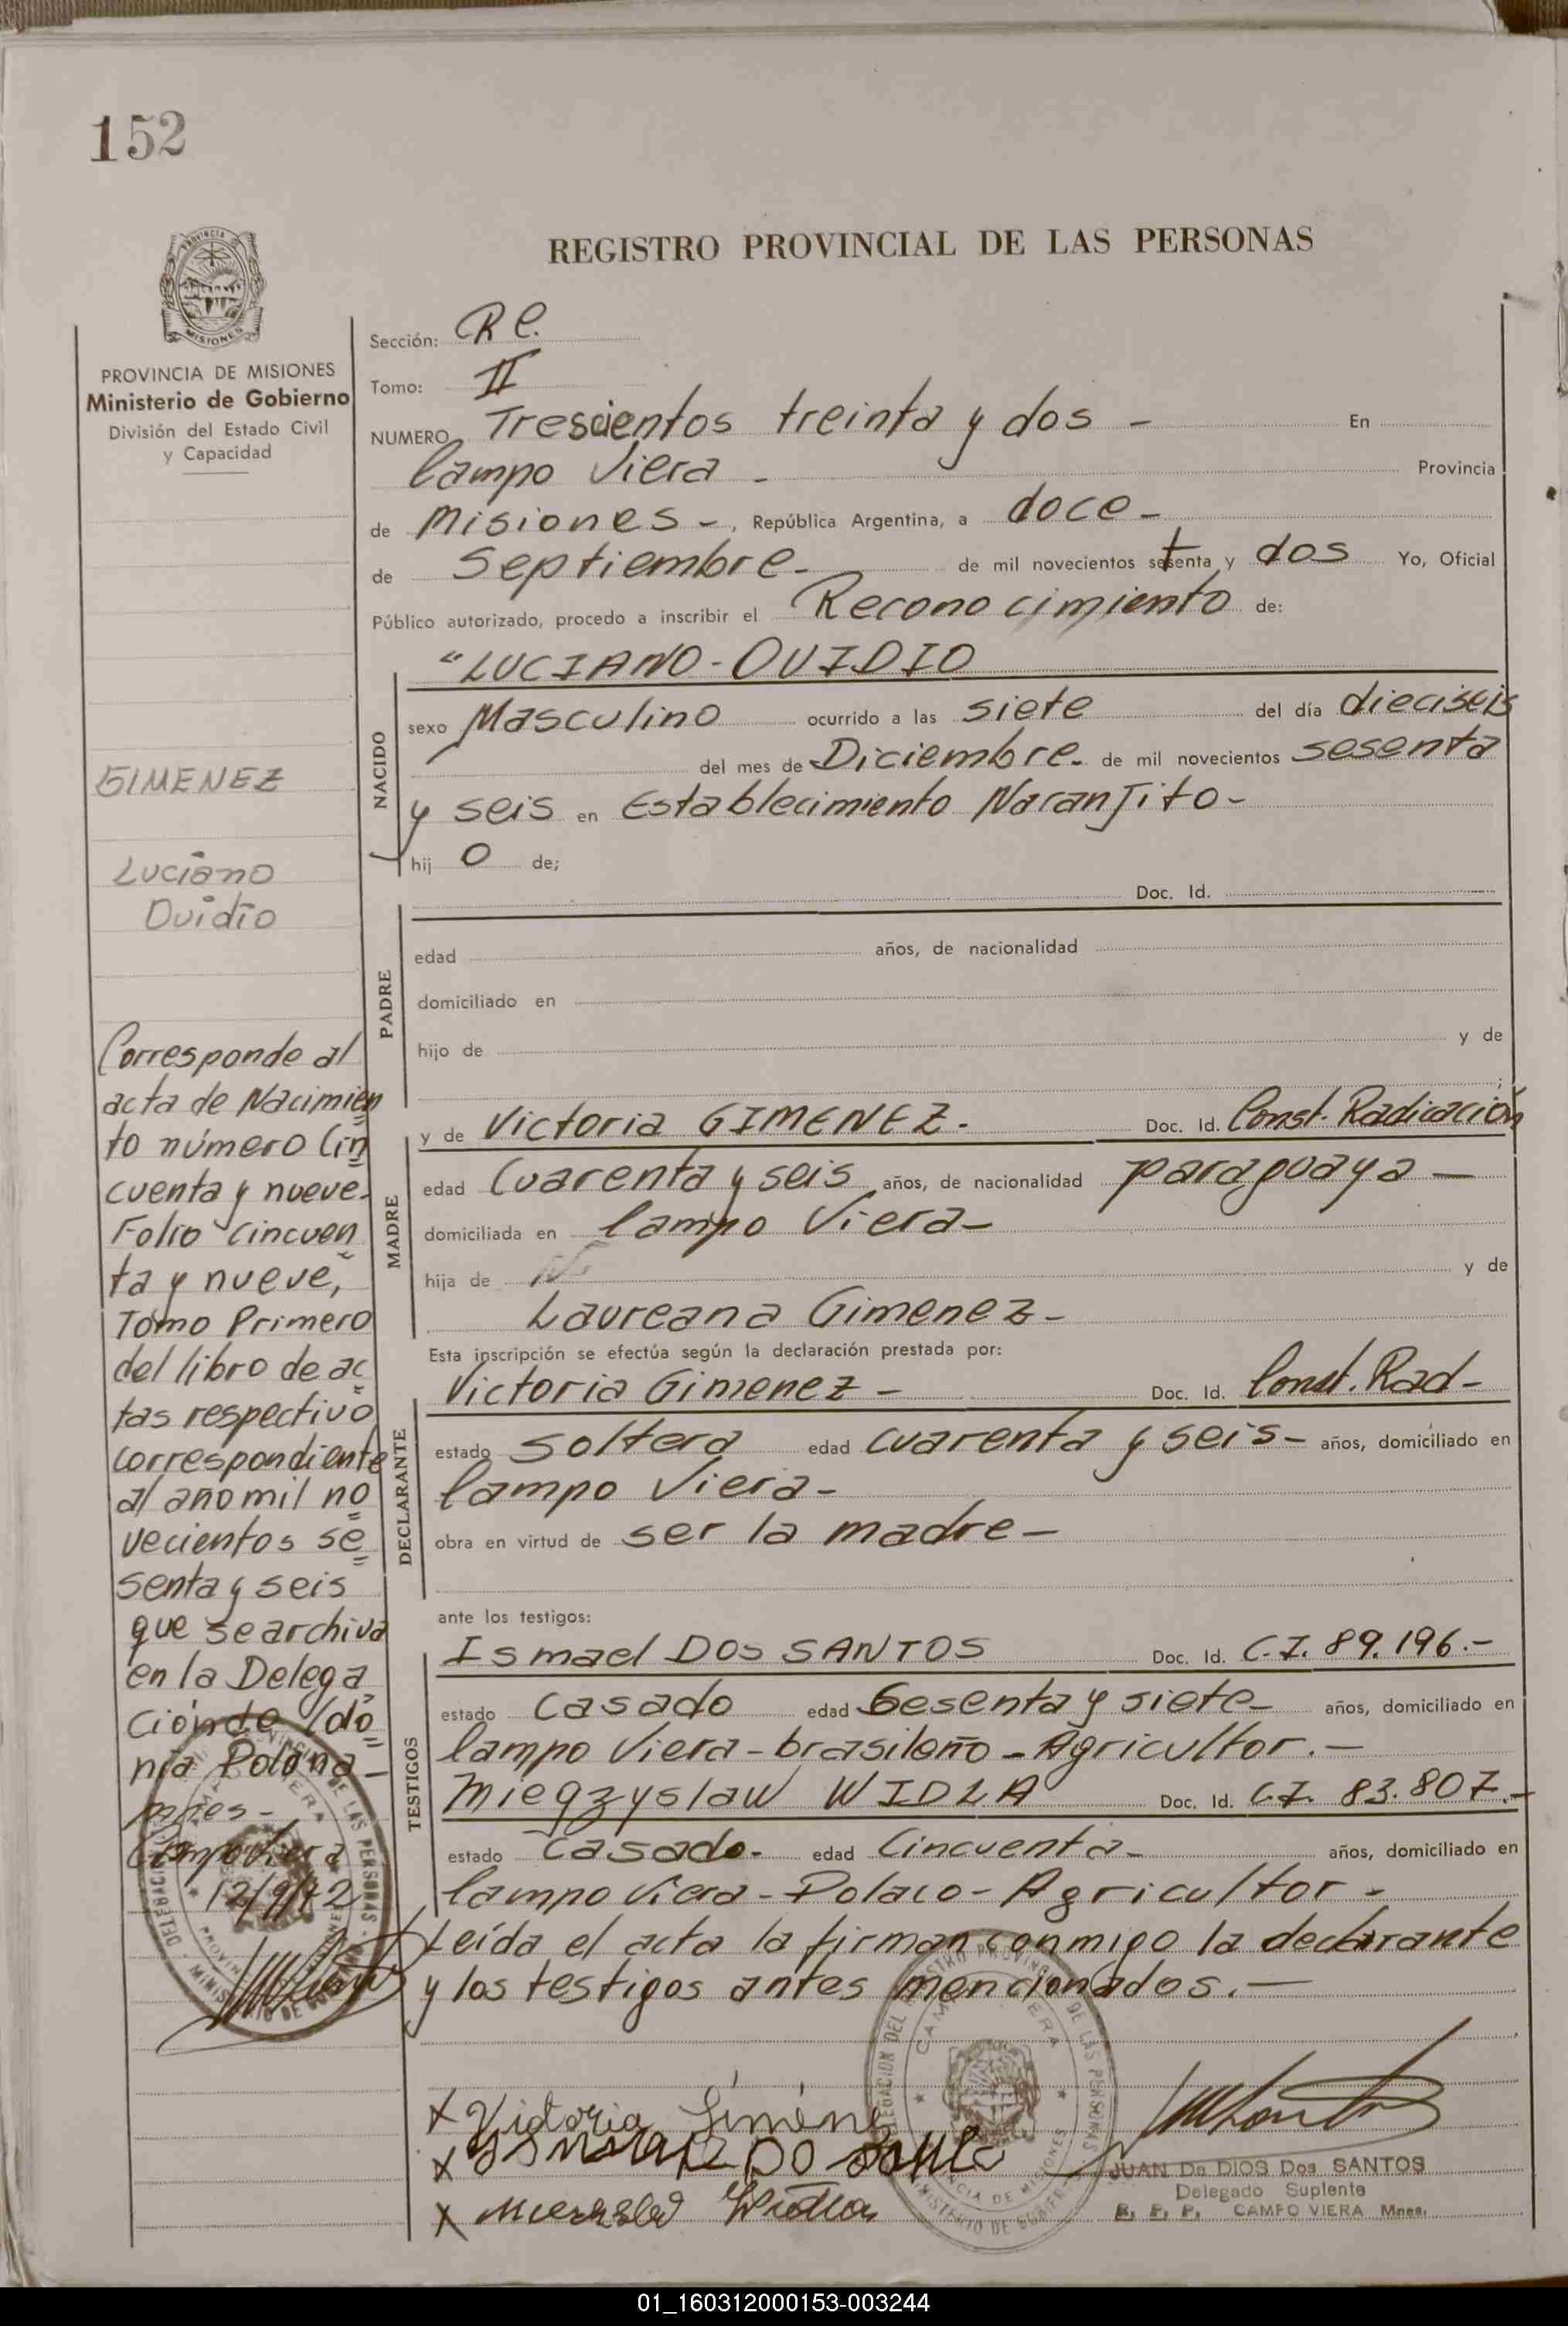 152
REGISTRO PROVINCIAL DE LAS PERSONAS
PROVINCIA
MISIONES
PROVINCIA DE MISIONES
Ministerio de Gobierno
División del Estado Civil
y Capacidad
Sección: R C.
Tomo: II
NUMERO Trescientos treinta y dos - En
Campo Viera - Provincia
de Misiones - , República Argentina, a doce -
de Septiembre - de mil novecientos setenta y dos Yo, Oficial
Público autorizado, procedo a inscribir el Reconocimiento de:
"LUCIANO-OVIDIO
NACIDO
sexo Masculino ocurrido a las siete del día dieciseis
del mes de Diciembre. de mil novecientos sesenta
y seis en Establecimiento Naranjito-
hij o de;
Doc. Id.
PADRE
edad años, de nacionalidad
domiciliado en
hijo de y de
;
MADRE
y de Victoria GIMENEZ. Doc. Id. Const. Radicación
edad Cuarenta y seis años, de nacionalidad paraguaya -
domiciliada en Campo Viera-
hija de y de
Laureana Gimenez-
Esta inscripción se efectúa según la declaración prestada por:
DECLARANTE
Victoria Gimenez - Doc. Id. Const. Rad-
estado soltera edad cuarenta y seis- años, domiciliado en
Campo Viera-
obra en virtud de ser la madre-
ante los testigos:
TESTIGOS
Ismael DOS SANTOS Doc. Id. C.I. 89.196.-
estado casado edad Sesenta y siete- años, domiciliado en
Campo Viera-brasileño-Agricultor.-
Miegzyslaw WIDLA Doc. Id. C.I. 83.807.-
estado casado- edad Cincuenta- años, domiciliado en
Campo Viera-Polaco-Agricultor-
Leída el acta la firman conmigo la declarante
y los testigos antes mencionados.-
GIMENEZ
Luciano
Ovidio
Corresponde al
acta de Nacimien
to número Cin
cuenta y nueve-
Folio Cincuen
ta y nueve,
Tomo Primero
del libro de ac
tas respectivo
correspondiente
al año mil no
vecientos se
senta y seis
que se archiva
en la Delega
ción de Colo
nia Polana-
Mnes-
Campo Viera
12/9/72
x Victoria Jiménez
x
x
JUAN De DIOS Dos SANTOS
Delegado Suplente
R. P. P. CAMPO VIERA Mnes.
01_160312000153-003244